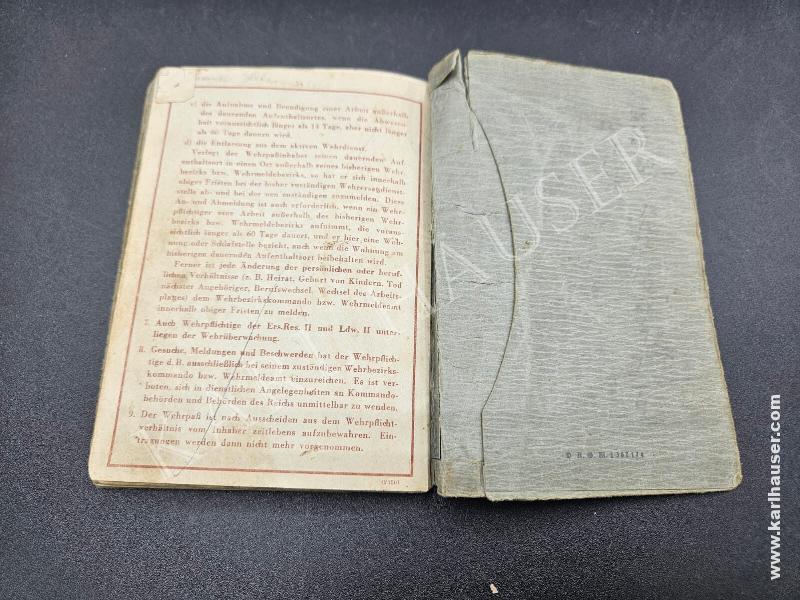 c) die Aufnahme und Beendigung einer Arbeit außerhalb,
des dauernden Aufenthaltsortes, wenn die Abwesen-
heit voraussichtlich länger als 14 Tage, aber nicht länger
als 60 Tage dauern wird.
d) die Entlassung aus dem aktiven Wehrdienst.
Verlegt der Wehrpaßinhaber seinen dauernden Auf-
enthaltsort in einen Ort außerhalb seines bisherigen Wehr-
bezirks bzw. Wehrmeldebezirks, so hat er sich innerhalb
obiger Fristen bei der bisher zuständigen Wehrersatzdienst-
stelle ab- und bei der neu zuständigen anzumelden. Diese
An- und Abmeldung ist auch erforderlich, wenn ein Wehr-
pflichtiger eine Arbeit außerhalb des bisherigen Wehr-
bezirks bzw. Wehrmeldebezirks aufnimmt, die voraus-
sichtlich länger als 60 Tage dauert, und er hier eine Woh-
nung oder Schlafstelle bezieht, auch wenn die Wohnung am
bisherigen dauernden Aufenthaltsort beibehalten wird.
Ferner ist jede Änderung der persönlichen oder beruf-
lichen Verhältnisse (z. B. Heirat, Geburt von Kindern, Tod
nächster Angehöriger, Berufswechsel, Wechsel des Arbeits-
platzes) dem Wehrbezirkskommando bzw. Wehrmeldeamt
innerhalb obiger Fristen zu melden.
7. Auch Wehrpflichtige der Ers.Res. II und Ldw. II unter-
liegen der Wehrüberwachung.
8. Gesuche, Meldungen und Beschwerden hat der Wehrpflich-
tige d. B. ausschließlich bei seinem zuständigen Wehrbezirks-
kommando bzw. Wehrmeldeamt einzureichen. Es ist ver-
boten, sich in dienstlichen Angelegenheiten an Kommando-
behörden und Behörden des Reichs unmittelbar zu wenden.
9. Der Wehrpaß ist nach Ausscheiden aus dem Wehrpflicht-
verhältnis vom Inhaber zeitlebens aufzubewahren. Ein-
tragungen werden dann nicht mehr vorgenommen.
HAUSER
www.karlhauser.com